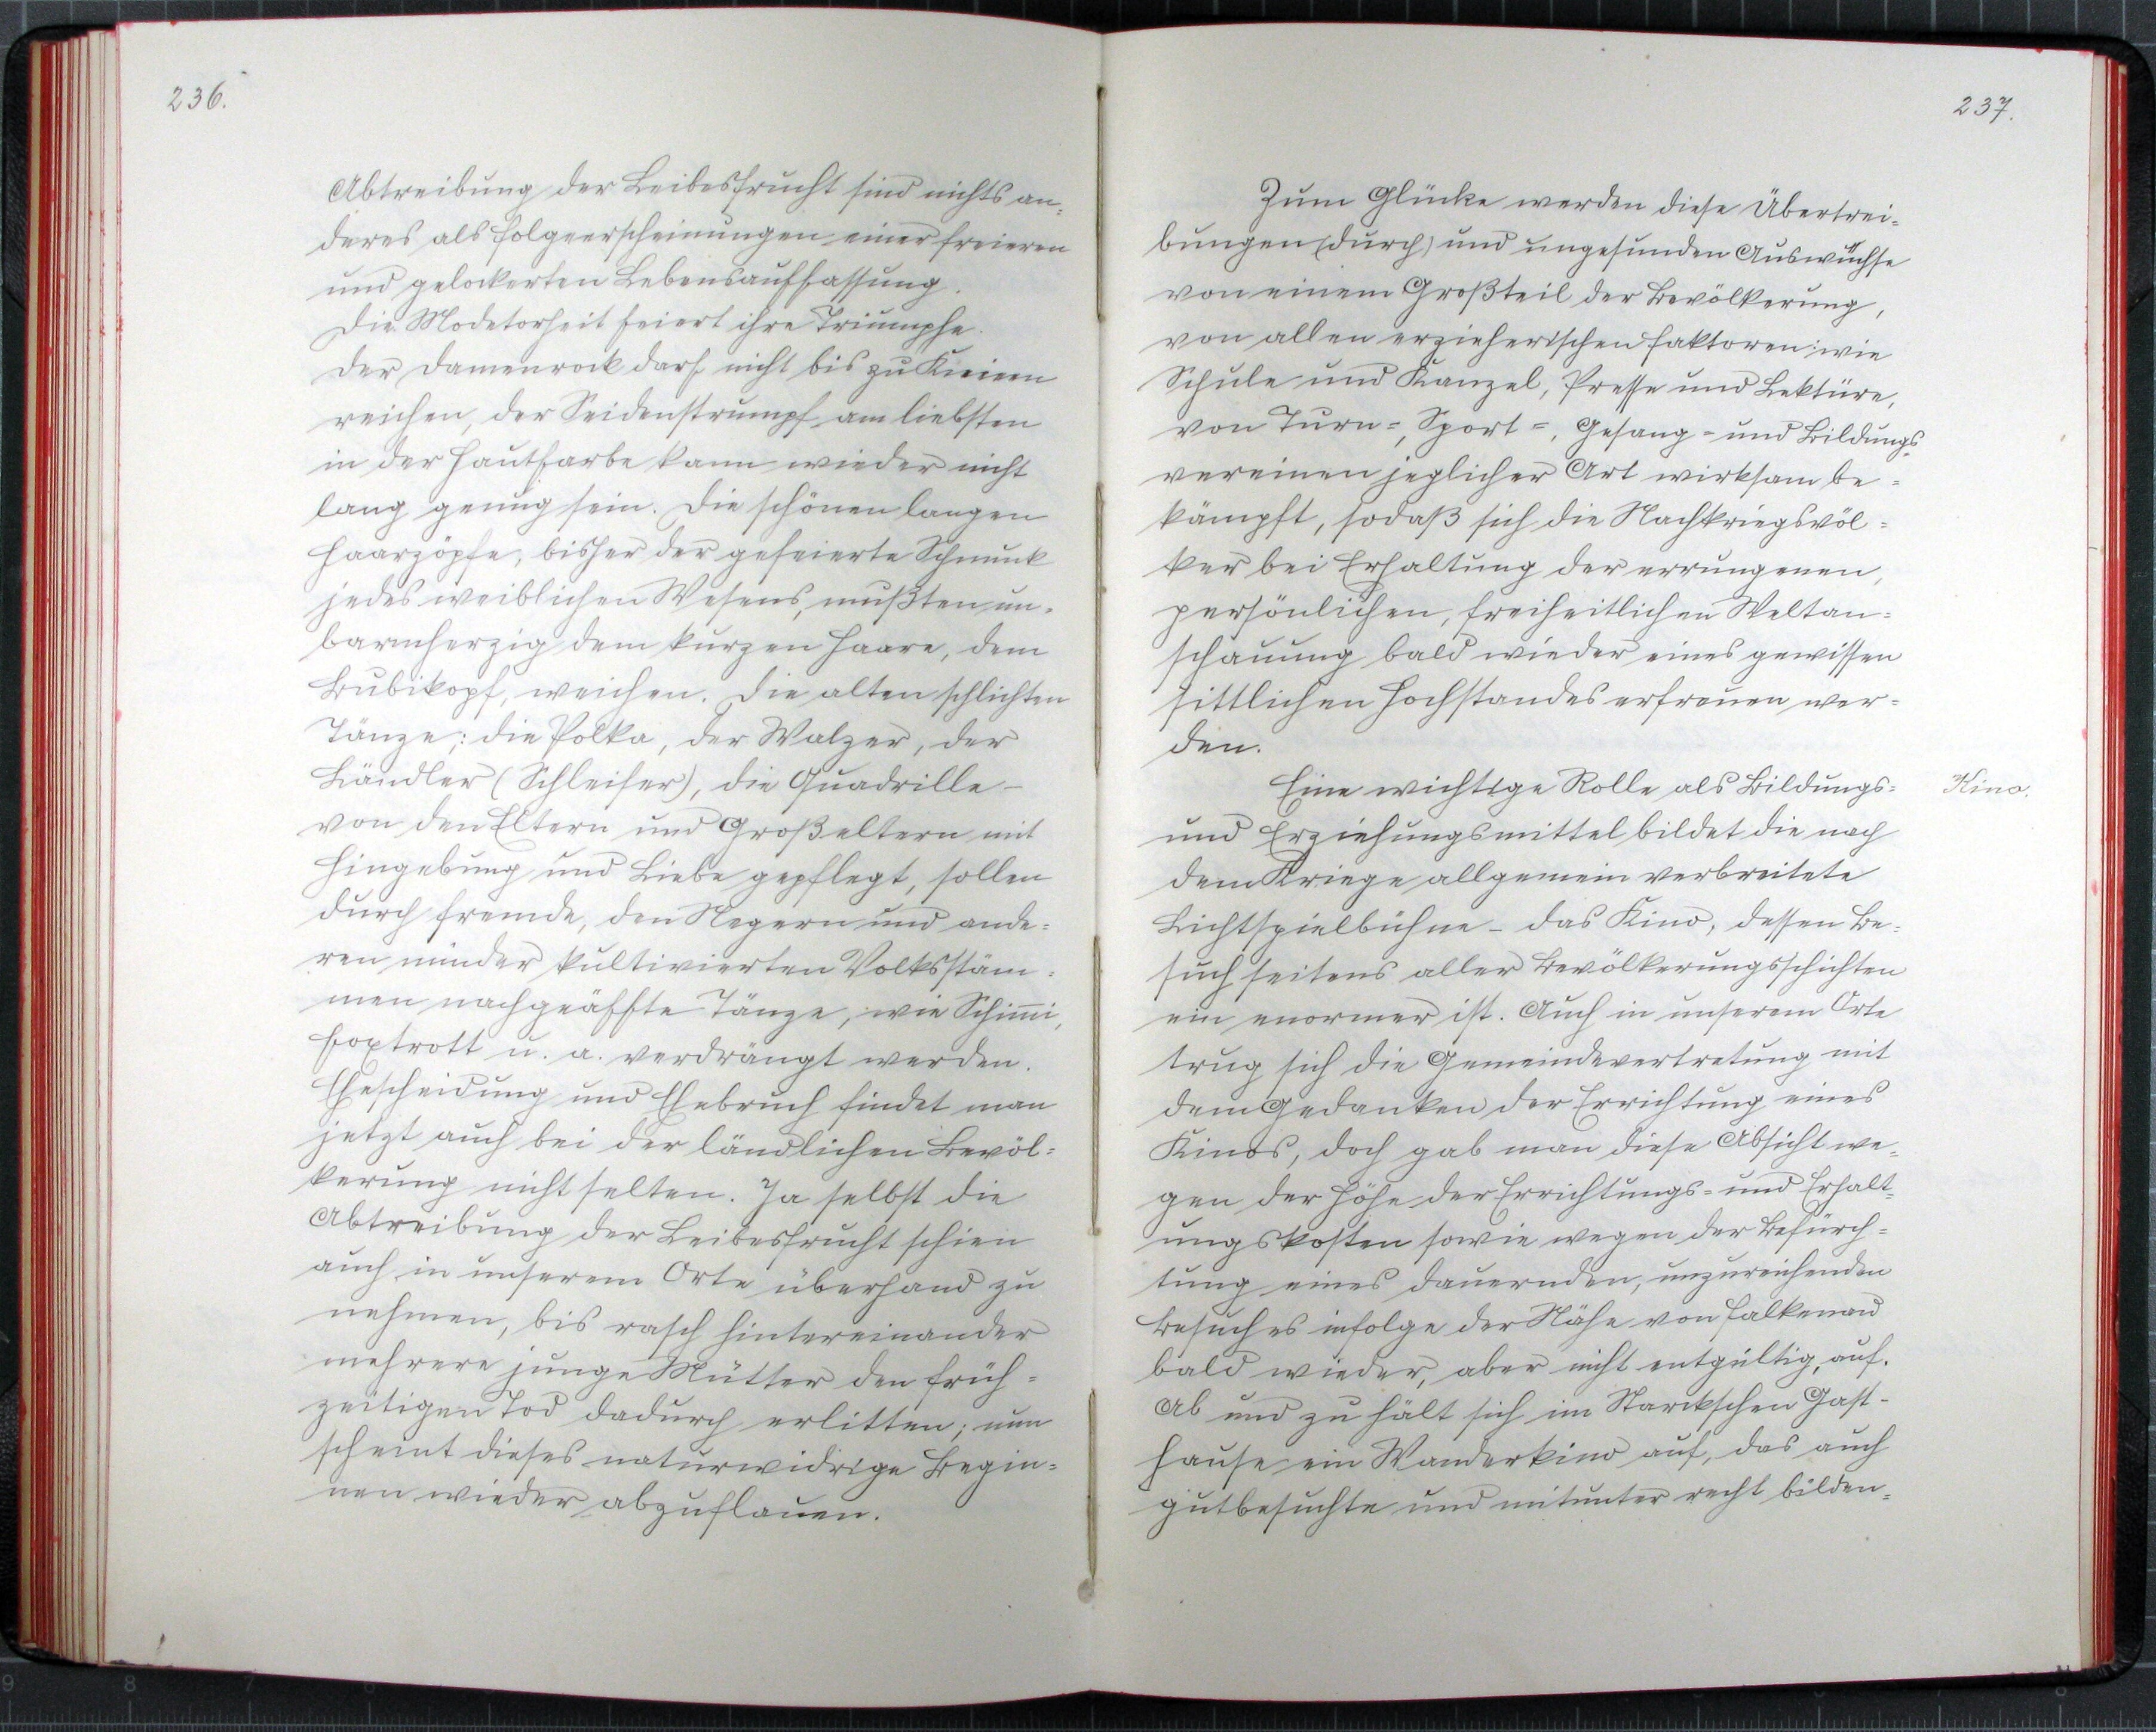 236.
Abtreibung der Leibesfrucht sind nichts an-
deres als Folgeerscheinungen einer freieren
und gelockerten Lebensauffassung.
Die Modetorheit feiert ihre Triumphe.
Der Damenrock darf nicht bis zu Knieen
reichen, der Seidenstrumpf am liebsten
in der Hautfarbe kann wieder nicht
lang genug sein. Die schönen langen
Haarzöpfe, bisher der gefeierte Schmuck
jedes weiblichen Wesens, mußten un-
barmherzig dem kurzen Haare, dem
Bubikopf, weichen. Die alten schlichten
Tänze: die Polka, der Walzer, der
Ländler (Schleifer), die Quadrille –
von den Eltern und Großeltern mit
Hingebung und Liebe gepflegt, sollen
durch fremde, den Negern und ande=
ren minder kultivierten Volksstäm=
men nachgeäffte Tänze, wie Schimmi,
Foxtrott u. a. verdrängt werden.
Ehescheidung und Ehebruch findet man
jetzt auch bei der ländlichen Bevöl=
kerung nicht selten. Ja selbst die
Abtreibung der Leibesfrucht schien
auch in unserem Orte überhand zu
nehmen, bis rasch hintereinander
mehrere junge Mütter den früh=
zeitigen Tod dadurch erlitten; nun
scheint dieses naturwidrige Begin=
nen wieder abzuflauen.
237.
Zum Glücke werden diese Übertrei=
bungen (durch) und ungesunden Auswüchse
von einem Großteil der Bevölkerung,
von allen erzieherischen Faktoren: wie
Schule und Kanzel, Presse und Lektüre,
von Turn=, Sport=, Gesang= und Bildungs=
vereinen jeglicher Art wirksam be=
kämpft, sodaß sich die Nachkriegsvöl=
ker bei Erhaltung der errungenen,
persönlichen, freiheitlichen Weltan=
schauung bald wieder eines gewissen
sittlichen Hochstandes erfreuen wer=
den.
Eine wichtige Rolle als Bildungs=
Kino.
und Erziehungsmittel bildet die nach
dem Kriege allgemein verbreitete
Lichtspielbühne – das Kino, dessen Be=
such seitens aller Bevölkerungsschichten
ein enormer ist. Auch in unserem Orte
trug sich die Gemeindevertretung mit
dem Gedanken der Errichtung eines
Kinos, doch gab man diese Absicht we=
gen der Höhe der Errichtungs= und Erhalt=
ungskosten sowie wegen der Befürch=
tung eines dauernden, unzureichenden
Besuches infolge der Nähe von Falkenau
bald wieder, aber nicht entgültig, auf.
Ab und zu hält sich im Starckschen Gast-
hause ein Wanderkino auf, das auch
gutbesuchte und mitunter recht bilden=